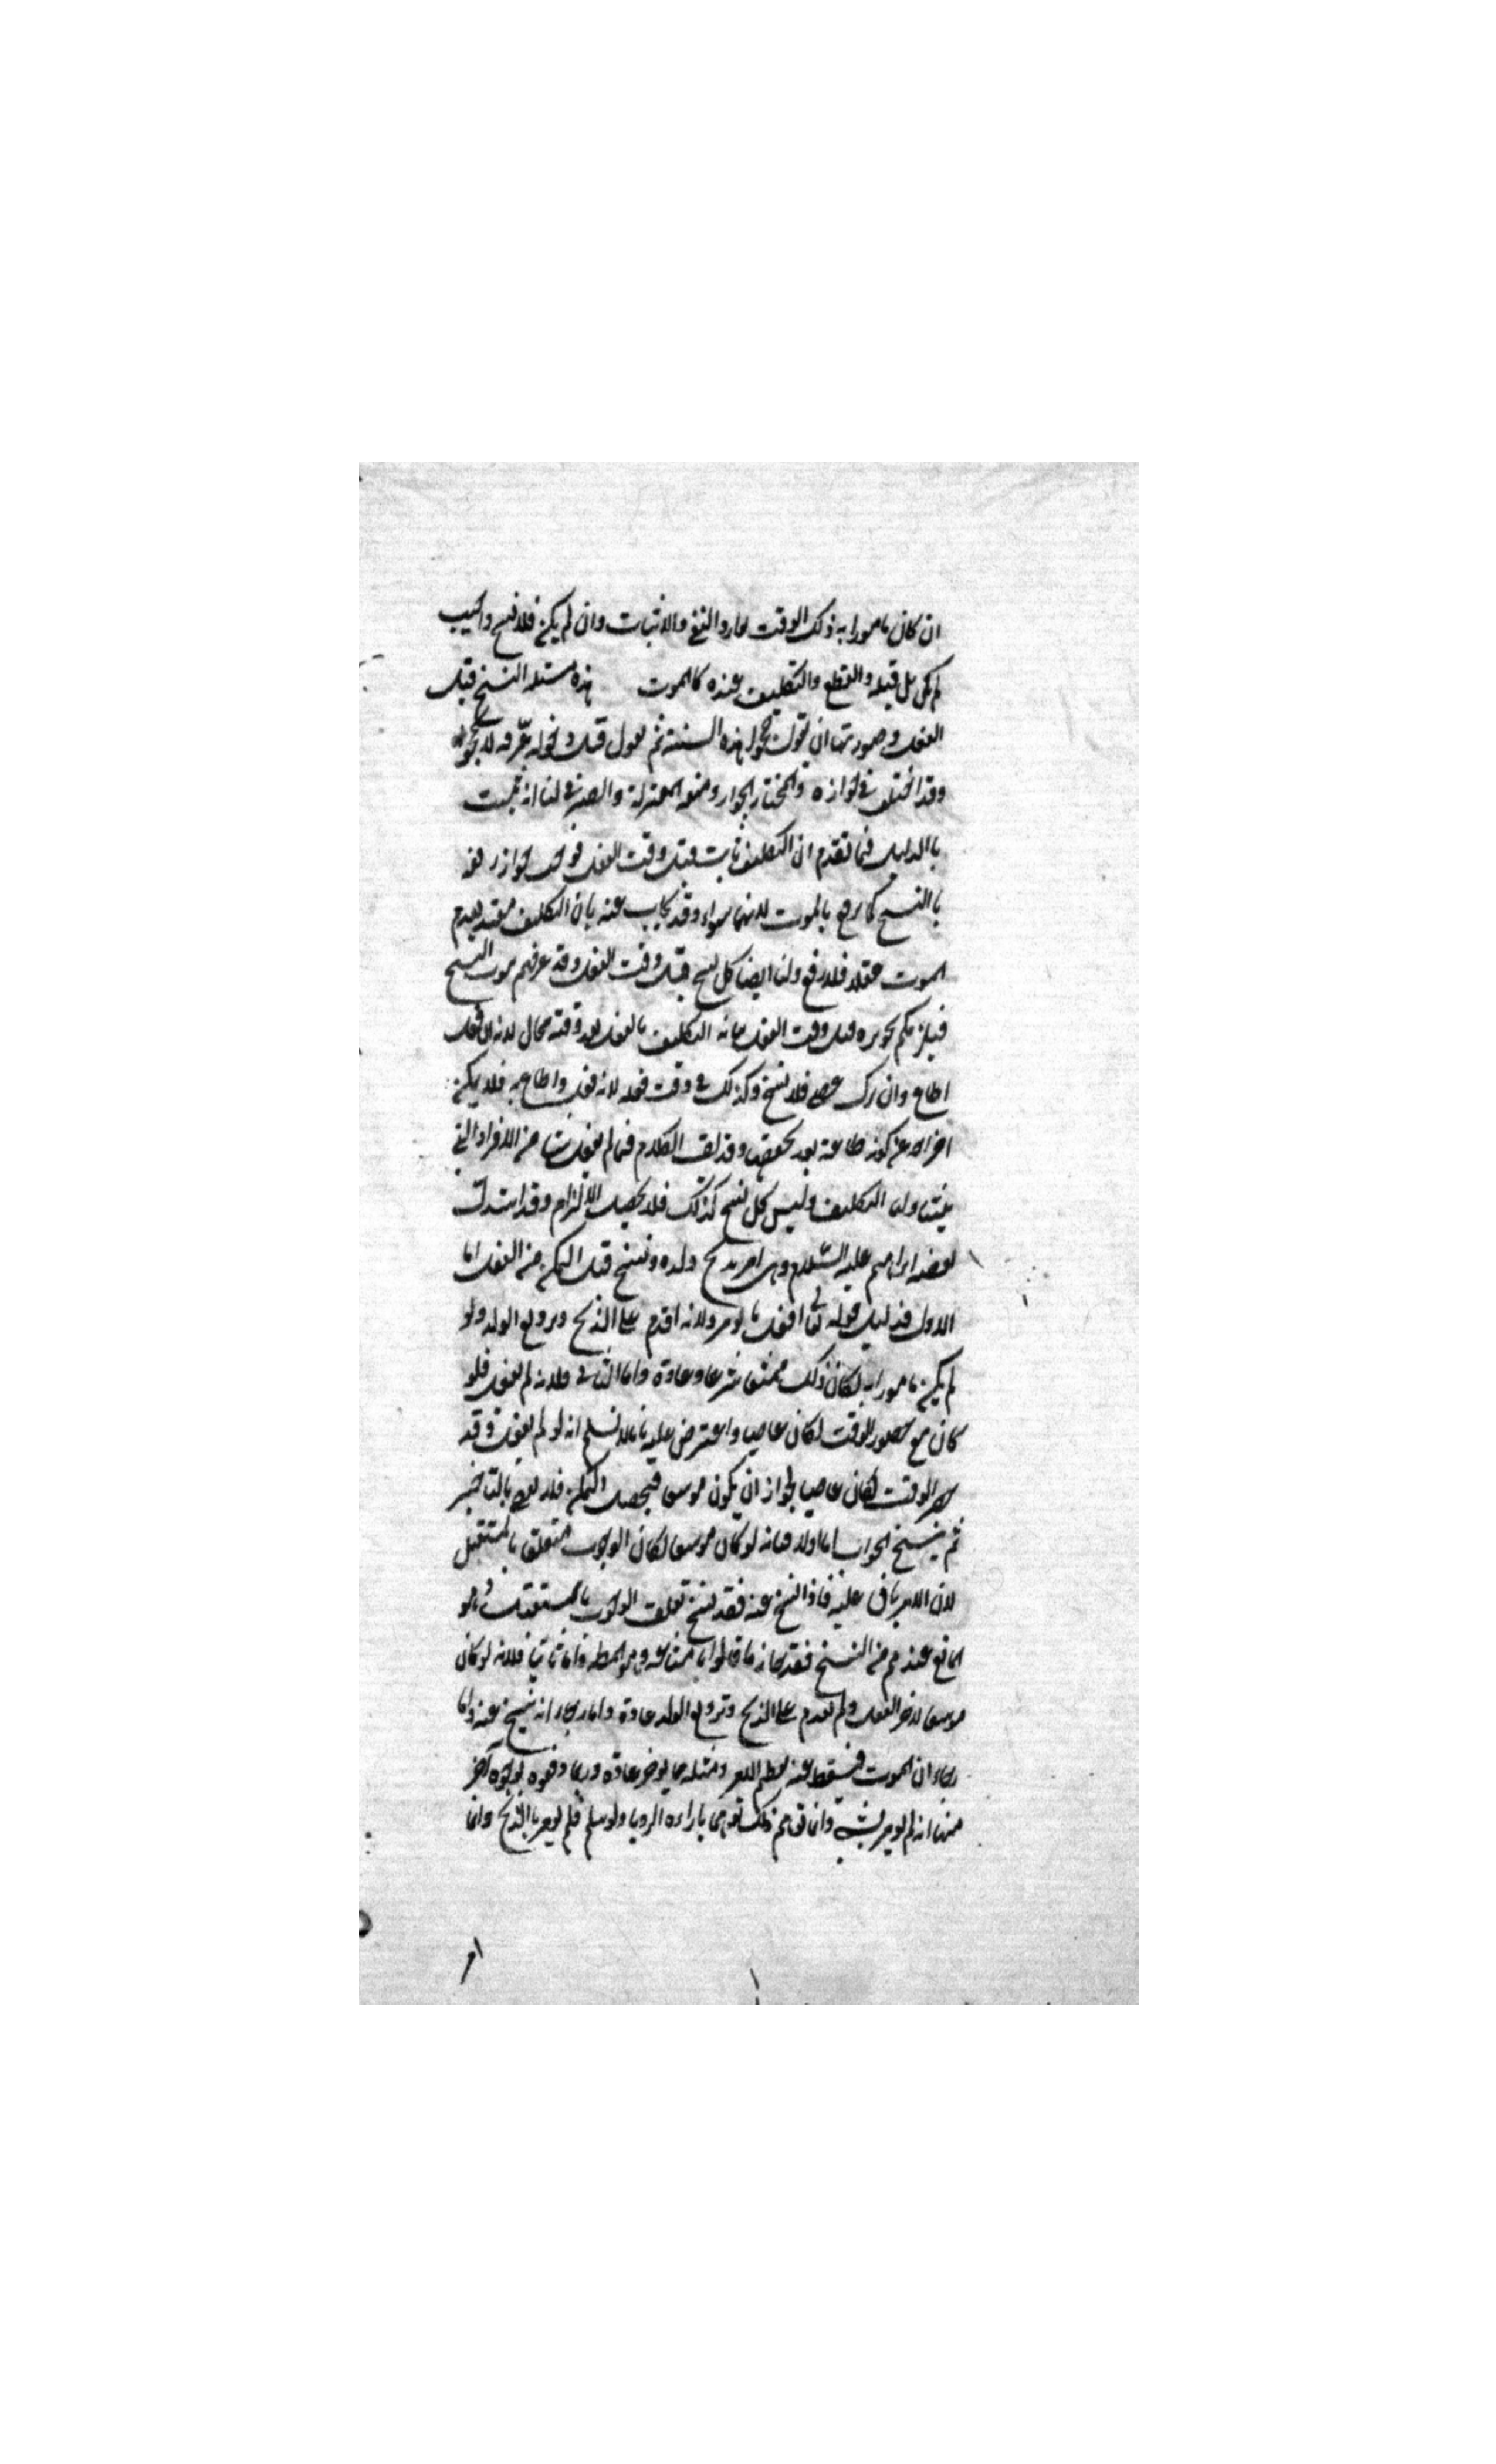 ان كان مامورا به ذلك الوقت توارد النفي والاثبات وان لم يكن فلا نسخ واجيب
لم يكن بل قبله وانقطع والتكليف عنده كالموت هذه مسئله النسخ قبل
الفعل وصورتها ان يقول حجوا هذه السنة ثم يقول قبل دخول عرفه لا تحجوا
وقد اختلف في جوازه والمختار الجواز ومنعه المعتزلة والصيرفي لنا انه ثبت
باالدليل فيما تقدم ان التكليف ثابت قبل وقت الفعل فوجب جواز رفعه
باالنسخ كما يرفع بالموت لانهما سواء وقد يجاب عنه بان التكليف مقيد بعدم
الموت عقلا فلا رفع ولنا ايضا كل نسخ قبل وقت الفعل وقد اعترفتم بثبوت النسخ
فيلزمكم تجويزه قبل وقت الفعل بيانه التكليف بالفعل بعد وقته محال لانه ان فعل
اطاع وان ترك عصى فلا نسخ وكذلك في وقت فعله لانه فعل واطاع به فلا يمكن
اخراجه عن كونه طاعة بعد تحققها وقد يقال الكلام فيما لم يفعل شيئا من الافراد التي
يتناولها التكليف وليس كل نسخ كذلك فلا يحصل الالزام وقد استدل
بقصة ابراهيم عليه السلام وهي امر بذبح ولده ونسخ قبل التمكن من الفعل اما
الاول فبدليل قوله تعالى افعل ما تومر ولانه اقدم على الذبح وترويع الولد ولو
لم يكن مامورا به لكان ذلك ممتنعا شرعا وعادة واما الثاني فلانه لم يفعل فلو
كان مع حضور الوقت لكان عاصيا واعترض عليه بانا لا نسلم انه لو لم يفعل وقد
حضر الوقت لكان عاصيا لجواز ان يكون موسعا فيحصل التمكن فلا يعصى بالتاخير
ثم ينسخ الجواب اما اولا فبانه لو كان موسعا لكان الوجوب متعلقا بالمستقبل
لان الامر باق عليه فاذا نسخ عنه فقد نسخ تعلق الوجوب بالمستقبل وهو
المانع عندهم من النسخ فقد جاز ما قالوا بامتناعه وهو المط واما ثانيا فلانه لو كان
موسعا لاخر الفعل ولم يقدم على الذبح وترويع الولد عادة واما رجاء انه ينسخ عنه واما
رجاء ان الموت فيسقط عنه لعظم الامر ومثله مما يوخر عادة وربما دفعوه بوجوه آخر
منها انه لم يومر بشي وانما توهم ذلك توهما باراءه الرويا ولو سلم فلم يومر باالذبح وانما